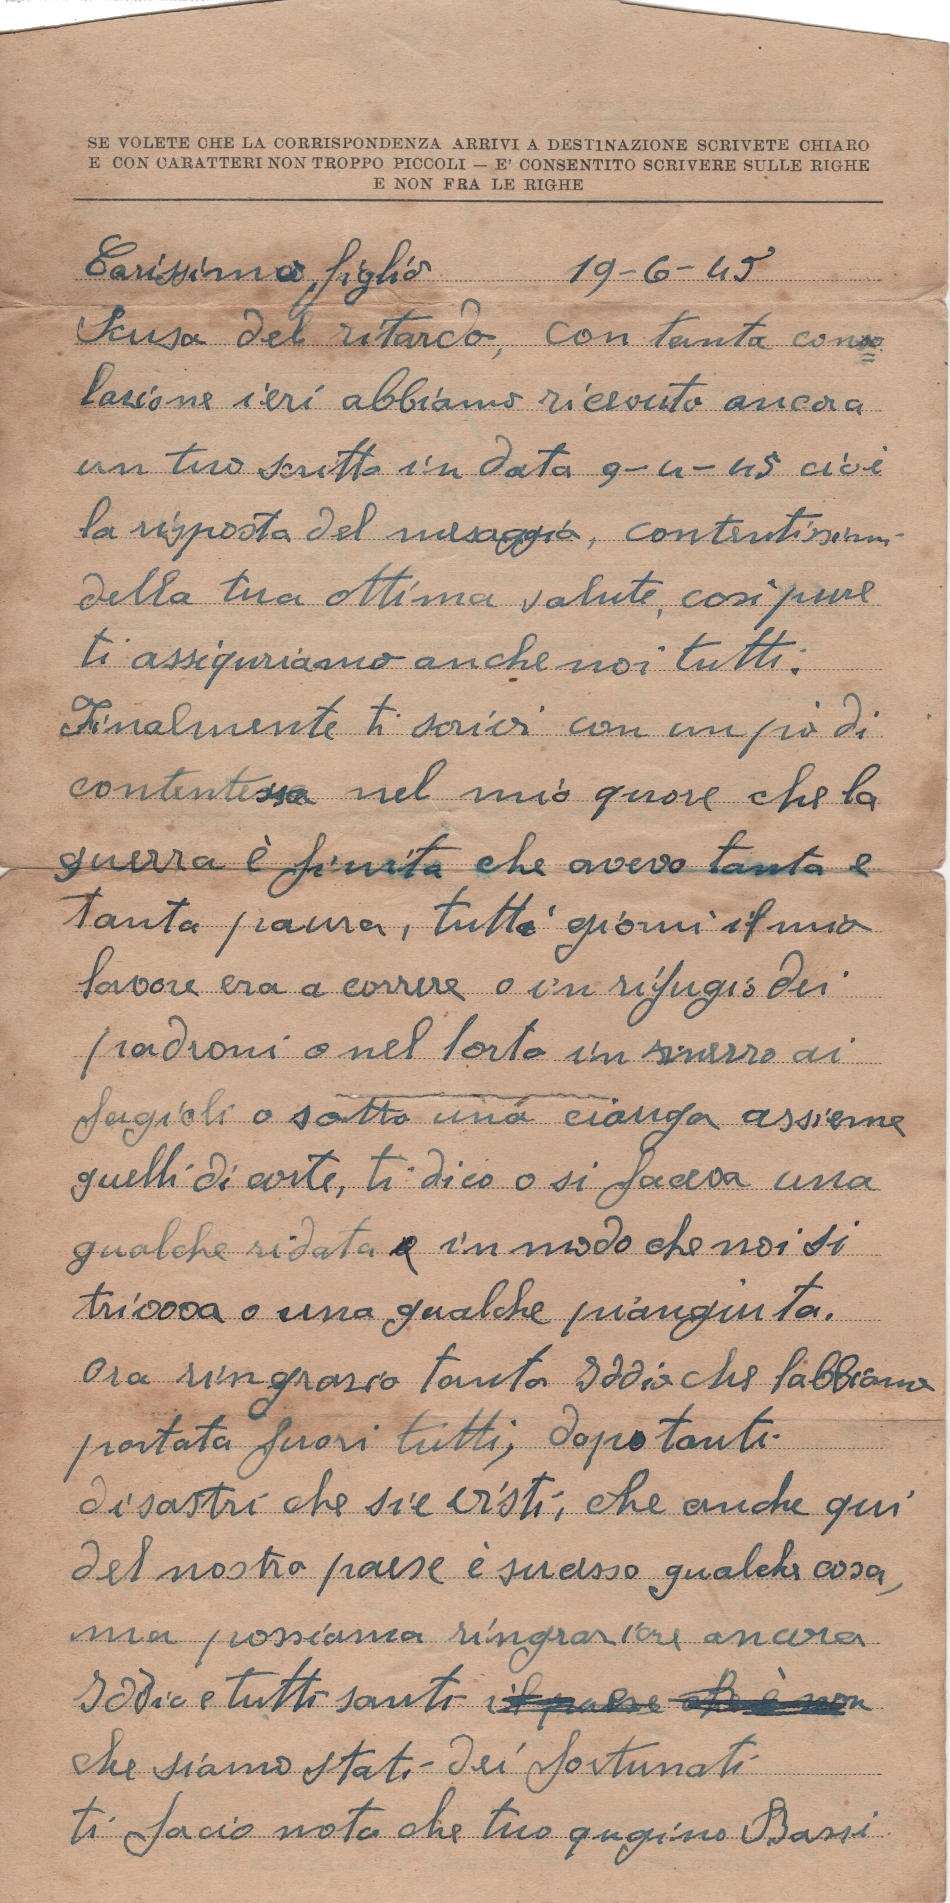 SE VOLETE CHE LA CORRISPONDENZA ARRIVI A DESTINAZIONE SCRIVETE CHIARO
E CON CARATTERI NON TROPPO PICCOLI — E' CONSENTITO SCRIVERE SULLE RIGHE
E NON FRA LE RIGHE
Carissimo figlio 19-6-45
Scusa del ritardo, con tanta conso
lazione ieri abbiamo ricevuto ancora
un tuo scritto in data 9-4-45 cioè
la risposta del mesaggio, contentissimi
della tua ottima salute, cosi pure
ti assiguriamo anche noi tutti.
Finalmente ti scrivi con un pò di
contentessa nel mio quore che la
guerra è finita che avevo tanta e
tanta paura, tutti giorni il mio
lavore era a correre o in rifugio dei
padroni o nel lorto in mezzo ai
fagioli o sotto una assieme
quelli di corte, ti dico o si faceva una
qualche ridata e in modo che noi si
trivova o una qualche piangiuta.
Ora ringrazio tanto Iddio che labbiamo
portata fuori tutti, dopo tanti
disastri che sie visti, che anche qui
del nostro paese è sucesso qualche cosa,
ma possiamo ringraziare ancora
Iddio e tutti santi il paese che è non
che siamo stati dei fortunati
ti facio nota che tuo qugino Bassi